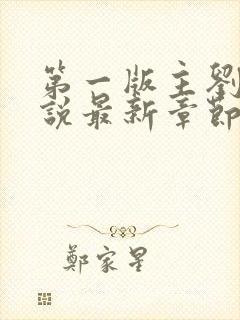 第一版主劉
說最新章節
鄭家星